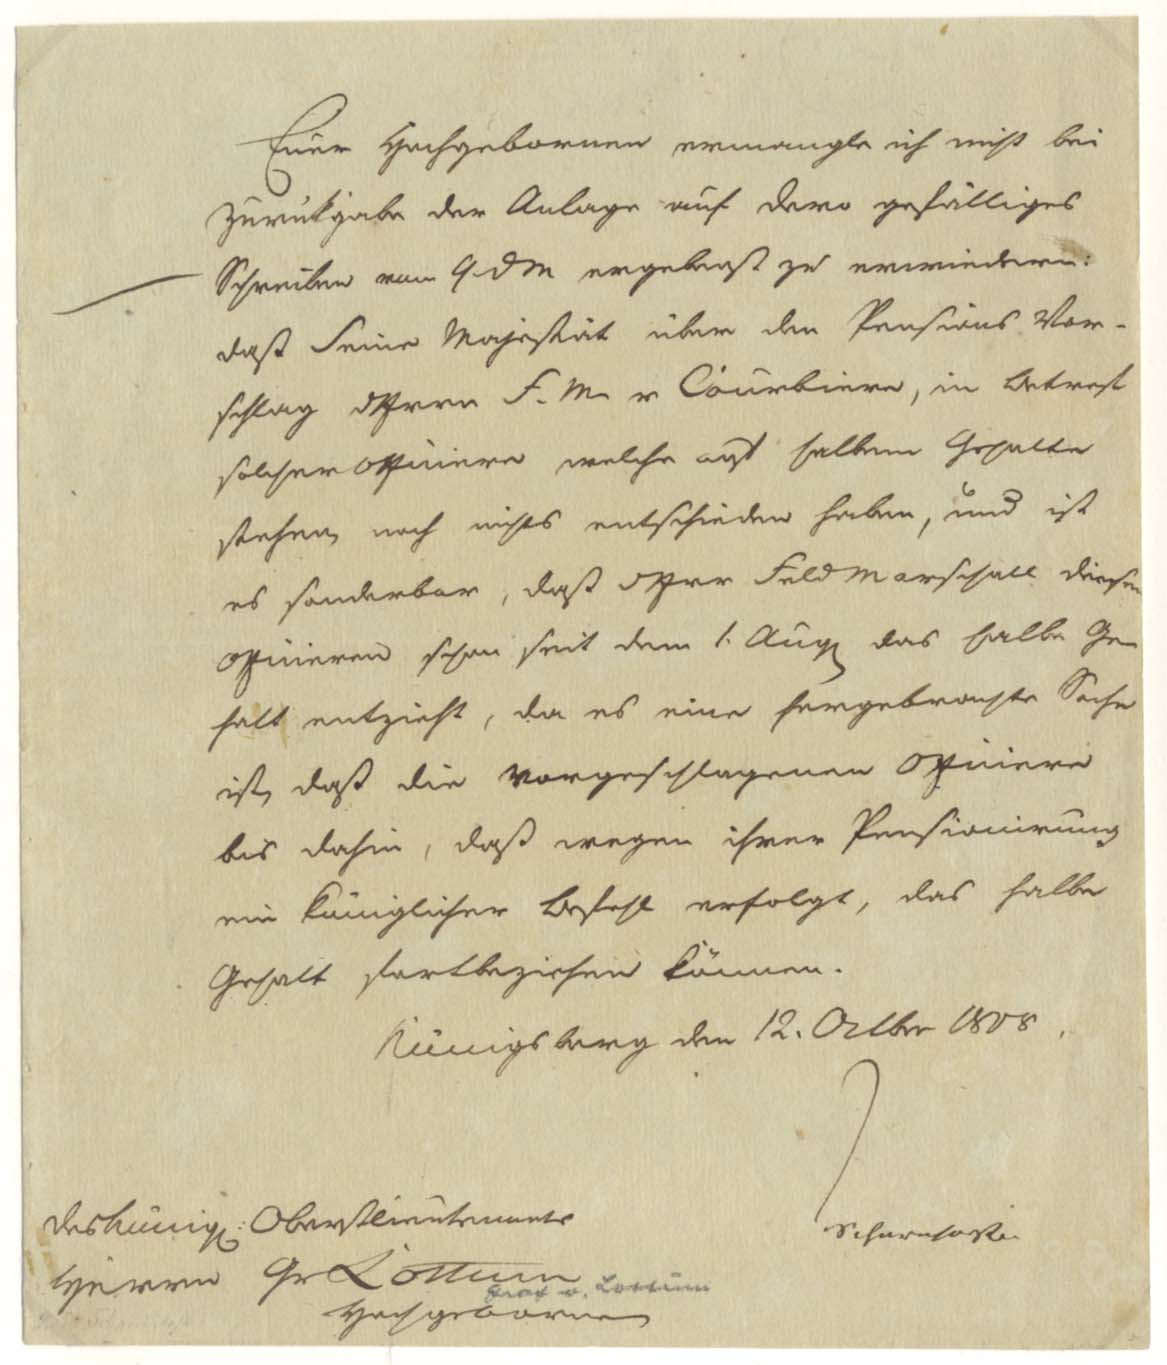 Euer Hochgebornen ermangle ich nicht bei
Zurückgabe der Anlage auf Dero gefälliges
Schreiben vom 9. d M ergebenst zu erwiedern:
daß Seine Majestät über den Pensions Vor-
schlag d Herrn F. M. v Courbiere, in Betreff
solcher Officiere welche auf halbem Gehalte
stehen, noch nichts entschieden haben, und ist
es sonderbar, daß d Herr FeldMarschall diesen
Officieren schon seit dem 1. Aug das halbe Ge-
halt entzieht, da es eine hergebrachte Sache
ist, daß die vorgeschlagenen Officiere
bis dahin, daß wegen ihrer Pensionirung
ein königlicher Befehl erfolgt, das halbe
Gehalt fortbeziehen können.
Königsberg den 12. Octber 1808.
Scharnhorst
Des Königl: Oberstlieutenants
Herrn Gr Lottum
Graf v. Lottum
Hochgeboren